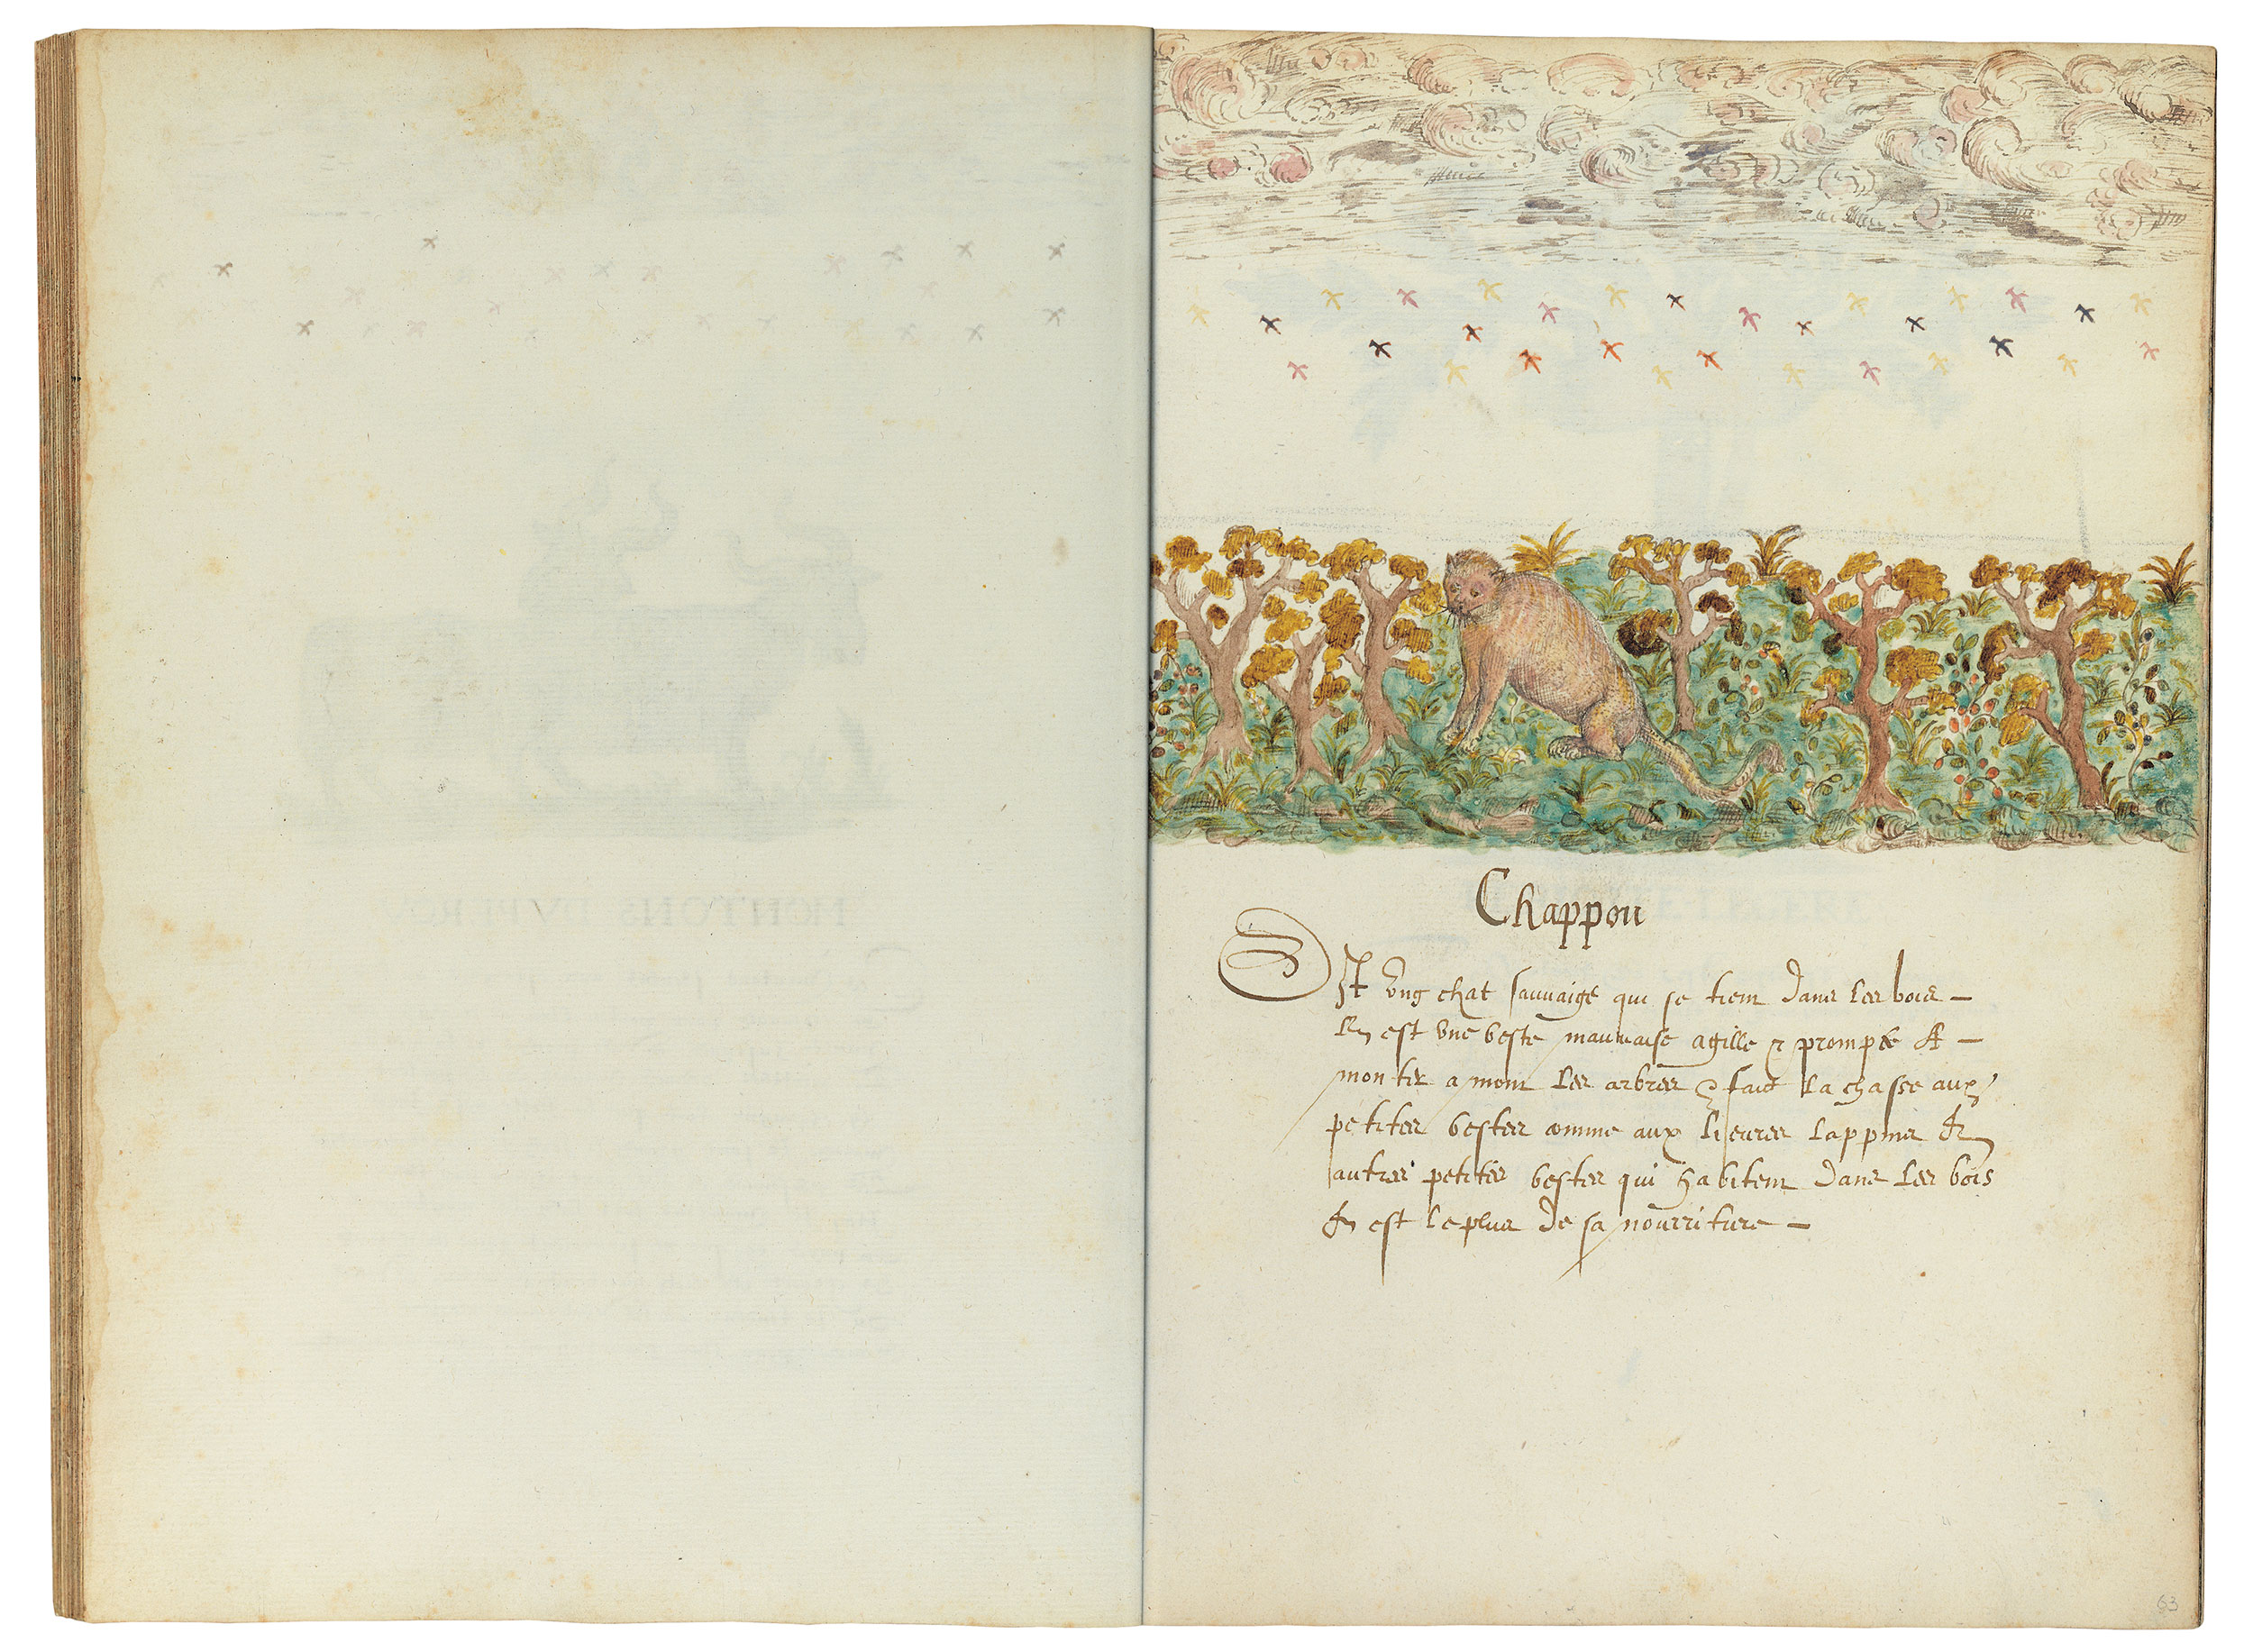 MONTONS DV PEROV
Chappou
Est ung chat sauvaige qui se tient dans les bois –
Et est une beste mauvaise agille & prompte A –
monter a mont les arbres & faict la chasse aux
petites bestes comme aux lieures lappins Et
autres petites bestes qui habitent dans les bois
Et est le plus de sa nourriture –
63